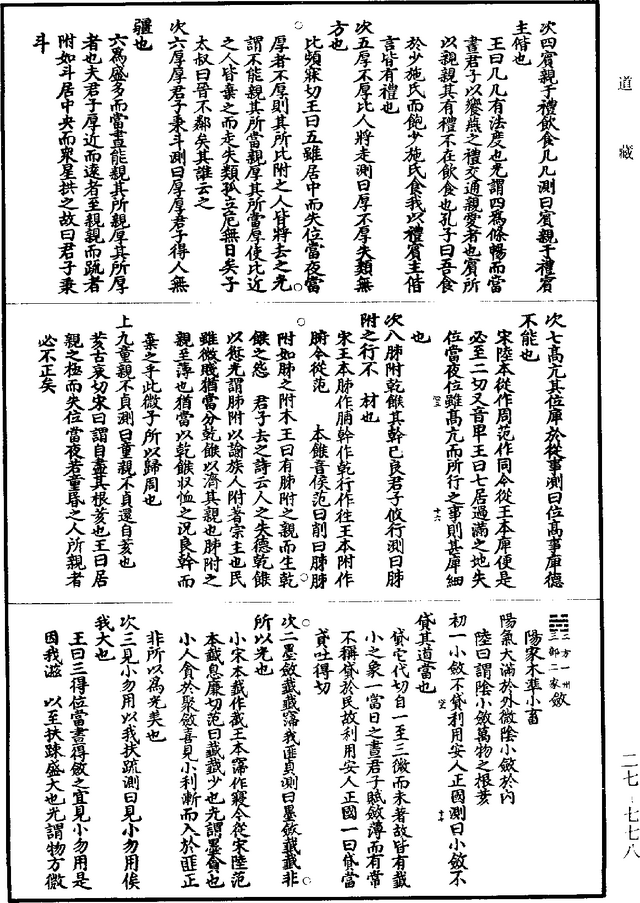 道藏
次四賓親于禮飲食几几測曰賓親于禮賓
主偕也
王曰几几有法度也光謂四爲條暢而當
晝君子以饗燕之禮交通親愛者也賓所
以親親其有禮不在飲食也孔子曰吾食
於少施氏而飽少施氏食我以禮賓主偕
言皆有禮也
次五厚不厚比人將走測曰厚不厚失類無
方也
比頻寐切王曰五雖居中而失位當夜當
厚者不厚則其所比附之人皆將去之光
謂不能親其所當親厚其所當厚使比近
之人皆棄之而走失類孤立危無日矣子
太叔曰晉不鄰矣其誰云之
次六厚厚君子秉斗測曰厚厚君子得人無
疆也
六爲盛多而當晝能親其所親厚其所厚
者也夫君子厚近而遠者至親親而疏者
附如斗居中央而衆星拱之故曰君子秉
斗
次七高亢其位庳於從事測曰位高事庳德
不能也
宋陸本從作周范作同今從王本庳便是
必至二切又音卑王曰七居過滿之地失
位當夜位雖高亢而所行之事則甚庳細
也
次八肺附乾餱其幹已良君子攸行測曰肺
附之行不 材也
宋王本肺作脯幹作乾行作往王本附作
腑今從范 本餱音侯范曰削曰肺肺
附如肺之附木王曰有肺附之親而生乾
餱之怨 君子去之詩云人之失德乾餱
以愆光謂肺附以諭族人附著宗主也民
雖微賤猶當分乾餱以濟其親也肺附之
親至薄也猶當以乾餱收恤之況良幹而
棄之乎此微子所以歸周也
上九童親不貞測曰童親不貞還自荄也
荄古哀切宋曰謂自盡其根荄也王曰居
親之極而失位當夜若童昏之人所親者
必不正矣
三方一州
三部二家 斂
陽家木準小畜
陽氣大滿於外微陰小斂於內
陸曰謂陰小斂萬物之根荄
初一小斂不貸利用安人正國測曰小斂不
貸其道當也
貸它代切自一至三微而未著故皆有斂
小之象一當日之晝君子賦斂薄而有常
不稱貸於民故利用安人正國一曰貸當
音吐得切
次二墨斂韱韱寖我匪貞測曰墨斂韱韱非
所以光也
小宋本韱作截王本寖作寢今從宋陸范
本韱息廉切范曰韱韱少也光謂墨貪也
小人貪於聚斂喜見小利漸而入於匪正
非所以爲光美也
次三見小勿用以我扶疏測曰見小勿用俟
我大也
王曰三得位當晝得斂之宜見小勿用是
因我滋 以至扶踈盛大也光謂物方微
二七·七七八